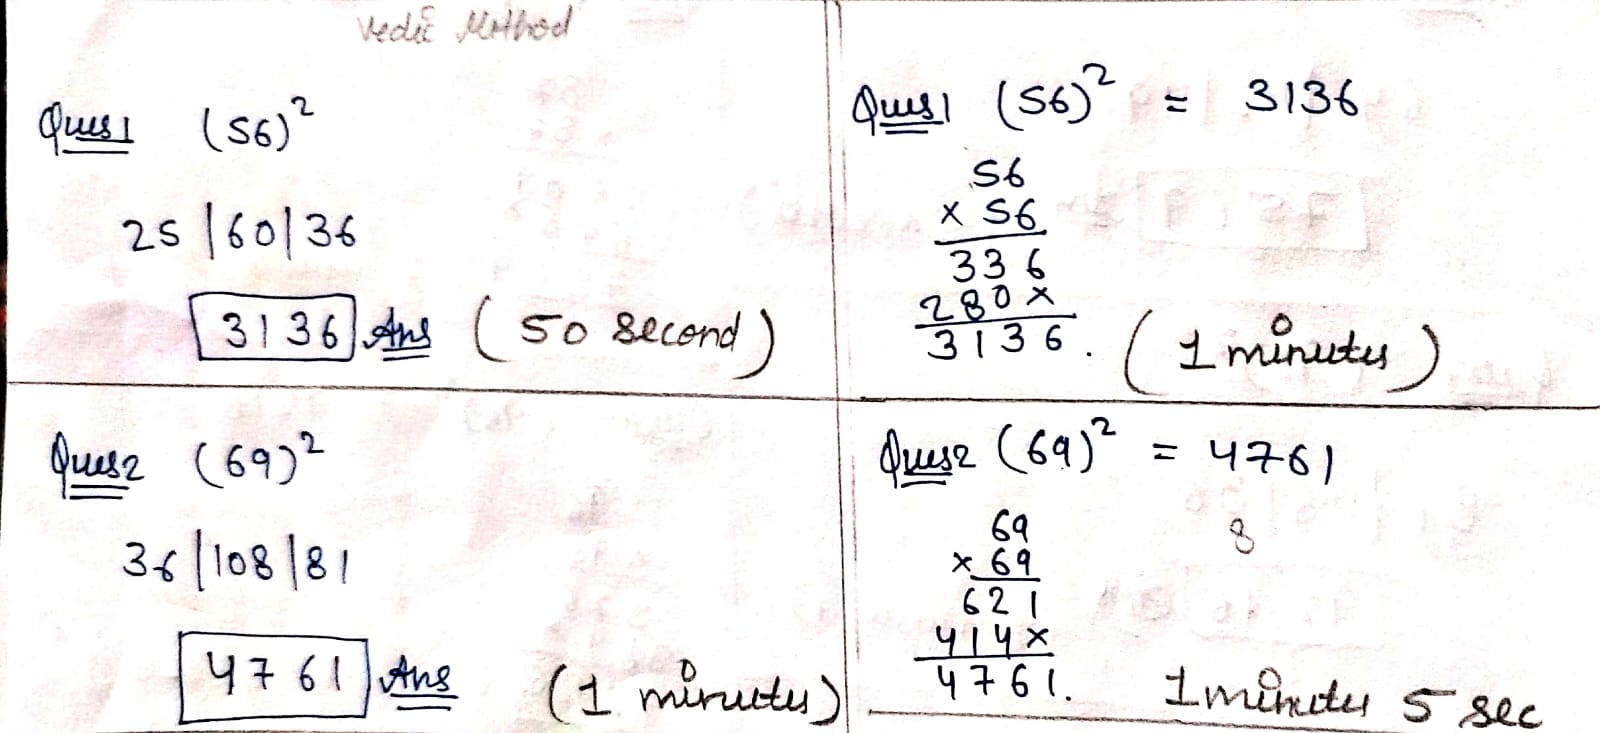 Vedic Method
Ques1 (56)²
25 | 60 | 36
3136 Ans (50 second)
Ques2 (69)²
36 | 108 | 81
4761 Ans (1 minutes)
Ques1 (56)² = 3136
56
× 56
336
280×
3136. (1 minutes)
Ques2 (69)² = 4761
8
69
× 69
621
414×
4761. 1 minutes 5 sec